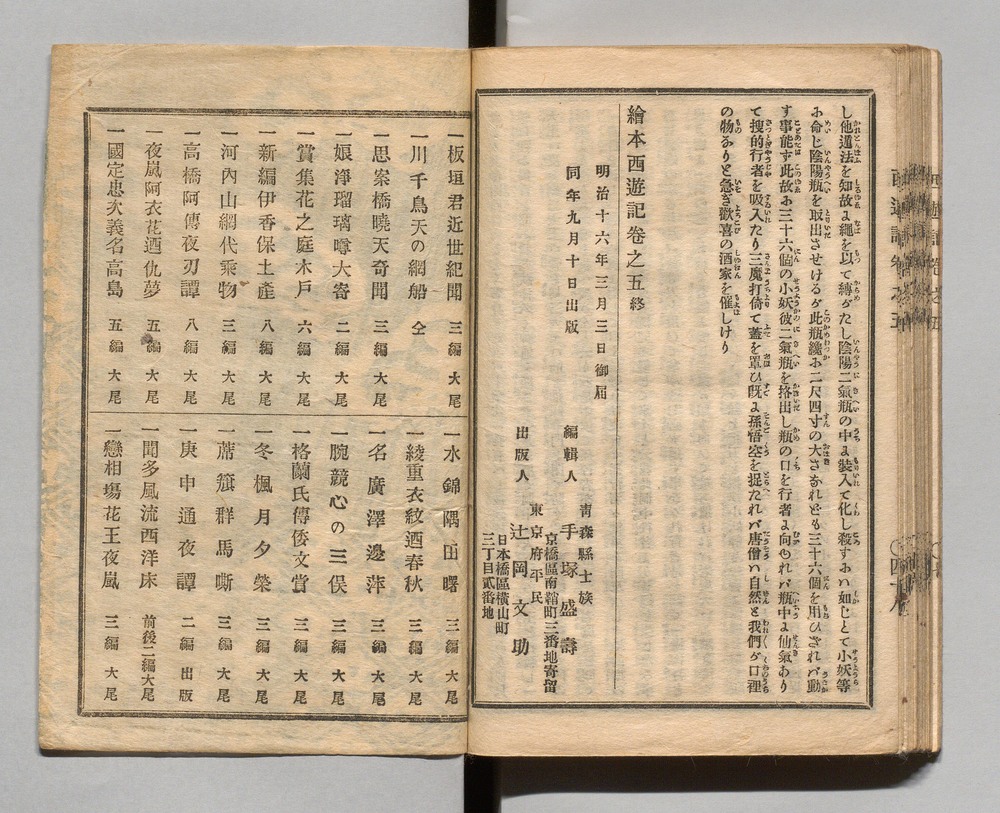 し他遁法を知故よ繩を以て縛がたし陰陽二氣瓶の中よ裝入て化し殺すおハ如じとて小妖等
お命じ陰陽瓶を取出させけるが此瓶纔お二尺四寸の大さなれども三十六個を用ひされバ動
す事能す此故お三十六個の小妖彼二氣瓶を捨出し瓶の口を行者よ向もれバ瓶中よ仙氣あり
て搜的行者を吸入たり三魔打倚て蓋を罩ひ既よ孫悟空を捉たれバ唐僧ハ自然と我們が口裡
の物なりと急ぎ歡喜の酒家を催しけり
繪本西遊記卷之五終
明治十六年三月三日御届
同年九月十日出版
編輯人
青森縣士族
手塚盛壽
京橋區南鞘町三番地寄留
出版人
東京府平民
辻岡文助
日本橋區橫山町
三丁目貳番地
一板垣君近世紀聞 三編大尾
一川千鳥天の網船 仝
一思案橋曉天奇聞 三編大尾
一娘淨瑠璃噂大寄 二編大尾
一賞集花之庭木戶 六編大尾
一新編伊香保土產 八編大尾
一河內山網代乘物 三編大尾
一高橋阿傳夜刃譚 八編大尾
一夜嵐阿衣花迺仇夢 五編大尾
一國定忠次義名高島 五編大尾
一水錦隅田曙 三編大尾
一綾重衣紋迺春秋 三編大尾
一名廣澤邊萍 三編大尾
一腕競心の三俣 三編大尾
一格蘭氏傳倭文賞 三編大尾
一冬楓月夕榮 三編大尾
一蓆籏群馬嘶 三編大尾
一庚申通夜譚 二編出版
一聞多風流西洋床 前後二編大尾
一戀相塲花王夜嵐 三編大尾